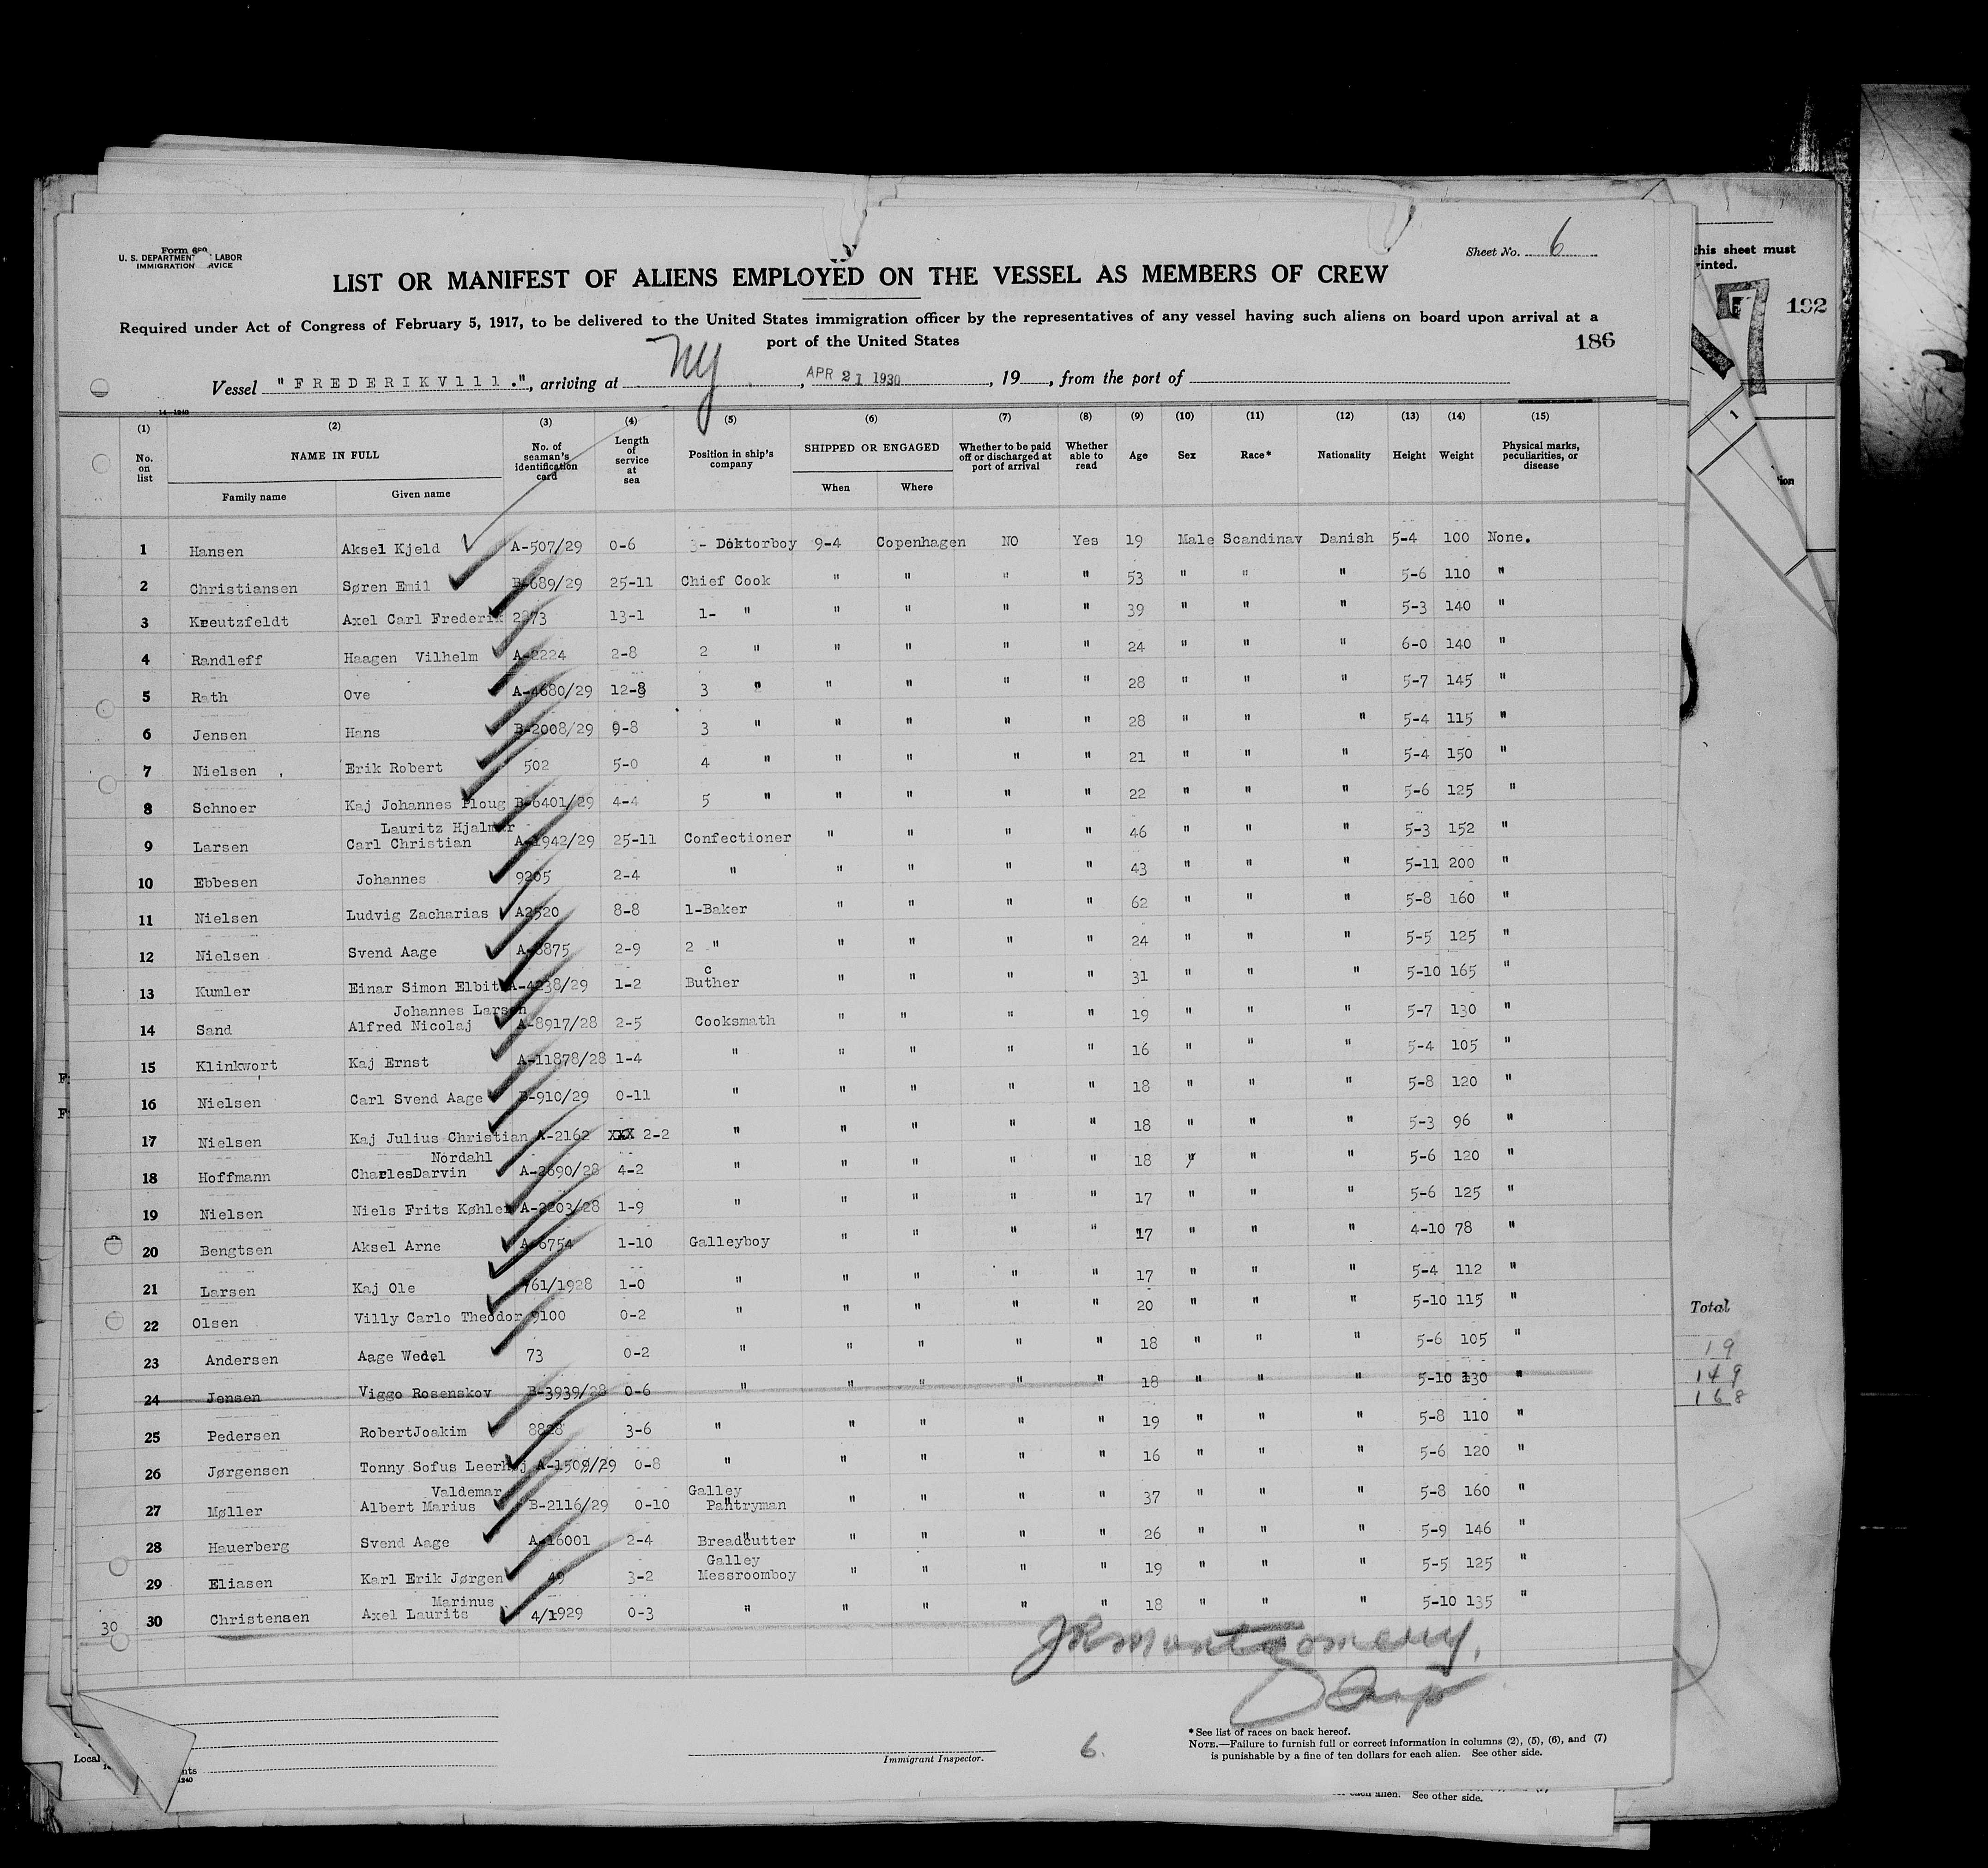 Form 689
U. S. DEPARTMENT LABOR
IMMIGRATION SERVICE
Sheet No. 6
LIST OR MANIFEST OF ALIENS EMPLOYED ON THE VESSEL AS MEMBERS OF CREW
Required under Act of Congress of February 5, 1917, to be delivered to the United States immigration officer by the representatives of any vessel having such aliens on board upon arrival at a
port of the United States
186
Vessel "FREDERIKV111.", arriving at NY, APR 21 1930, 19, from the port of
14-1240
(1) (2) (3) (4) (5) (6) (7) (8) (9) (10) (11) (12) (13) (14) (15)
No. on list NAME IN FULL No. of seaman's identification card Length of service at sea Position in ship's company SHIPPED OR ENGAGED Whether to be paid off or discharged at port of arrival Whether able to read Age Sex Race* Nationality Height Weight Physical marks, peculiarities, or disease
Family name Given name When Where
1 Hansen Aksel Kjeld A-507/29 0-6 3- Doktorboy 9-4 Copenhagen NO Yes 19 Male Scandinav Danish 5-4 100 None.
2 Christiansen Søren Emil B-689/29 25-11 Chief Cook " " " " 53 " " " 5-6 110 "
3 Kreutzfeldt Axel Carl Frederik 2873 13-1 1- " " " " " 39 " " " 5-3 140 "
4 Randleff Haagen Vilhelm A-2224 2-8 2 " " " " " 24 " " " 6-0 140 "
5 Rath Ove A-4680/29 12-8 3 " " " " " 28 " " " 5-7 145 "
6 Jensen Hans B-2008/29 9-8 3 " " " " " 28 " " " 5-4 115 "
7 Nielsen Erik Robert 502 5-0 4 " " " " " 21 " " " 5-4 150 "
8 Schnoer Kaj Johannes Ploug B-6401/29 4-4 5 " " " " " 22 " " " 5-6 125 "
Lauritz Hjalmer
9 Larsen Carl Christian A-1942/29 25-11 Confectioner " " " " 46 " " " 5-3 152 "
10 Ebbesen Johannes 9205 2-4 " " " " " 43 " " " 5-11 200 "
11 Nielsen Ludvig Zacharias A2520 8-8 1-Baker " " " " 62 " " " 5-8 160 "
12 Nielsen Svend Aage A-8875 2-9 2 " " " " " 24 " " " 5-5 125 "
c
13 Kumler Einar Simon Elbit A-4238/29 1-2 Buther " " " " 31 " " " 5-10 165 "
Johannes Larsen
14 Sand Alfred Nicolaj A-8917/28 2-5 Cooksmath " " " " 19 " " " 5-7 130 "
15 Klinkwort Kaj Ernst A-11878/28 1-4 " " " " " 16 " " " 5-4 105 "
16 Nielsen Carl Svend Aage B-910/29 0-11 " " " " " 18 " " " 5-8 120 "
17 Nielsen Kaj Julius Christian A-2162 XXX 2-2 " " " " " 18 " " " 5-3 96 "
Nordahl
18 Hoffmann CharlesDarvin A-2690/28 4-2 " " " " " 18 " " " 5-6 120 "
19 Nielsen Niels Frits Køhler A-2203/28 1-9 " " " " " 17 " " " 5-6 125 "
20 Bengtsen Aksel Arne A-6754 1-10 Galleyboy " " " " 17 " " " 4-10 78 "
21 Larsen Kaj Ole 761/1928 1-0 " " " " " 17 " " " 5-4 112 "
22 Olsen Villy Carlo Theodor 9100 0-2 " " " " " 20 " " " 5-10 115 "
23 Andersen Aage Wedel 73 0-2 " " " " " 18 " " " 5-6 105 "
24 Jensen Viggo Rosenskov B-3939/28 0-6 " " " " " 18 " " " 5-10 130 "
25 Pedersen RobertJoakim 8828 3-6 " " " " " 19 " " " 5-8 110 "
26 Jørgensen Tonny Sofus Leerhøj A-1509/29 0-8 " " " " " 16 " " " 5-6 120 "
Valdemar Galley
27 Møller Albert Marius B-2116/29 0-10 Pantryman " " " " 37 " " " 5-8 160 "
28 Hauerberg Svend Aage A-16001 2-4 Breadcutter " " " " 26 " " " 5-9 146 "
Galley
29 Eliasen Karl Erik Jørgen 49 3-2 Messroomboy " " " " 19 " " " 5-5 125 "
Marinus
30 30 Christensen Axel Laurits 4/1929 0-3 " " " " " 18 " " " 5-10 135 "
JR Montgomery.
Insp
6.
Immigrant Inspector.
*See list of races on back hereof.
NOTE.—Failure to furnish full or correct information in columns (2), (5), (6), and (7)
is punishable by a fine of ten dollars for each alien. See other side.
each alien. See other side.
Local
nts
1240
this sheet must
rinted.
192
7
1
ion
Total
19
149
168